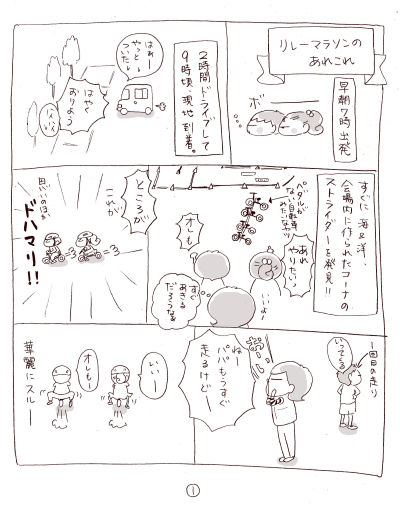 リレーマラソンの
あれこれ
早朝7時出発
ボー
2時間ドライブして
9時頃、現地到着。
はぁー
やっと
ついたー
はやく
おりよう
すぐに海と洋、
会場内に作られたコーナの
ストライダーを発見!!
ペダルが
ない自転車
みたいなヤツ
あれ
やりたいっ
オレも
いいよ
すぐ
あきる
だろうなぁ
ところが
これが
ドハマリ!!
1回目の走り
いってくる
ねー
パパもうすぐ
走るけどー
いいー
オレもー
華麗にスルー
1